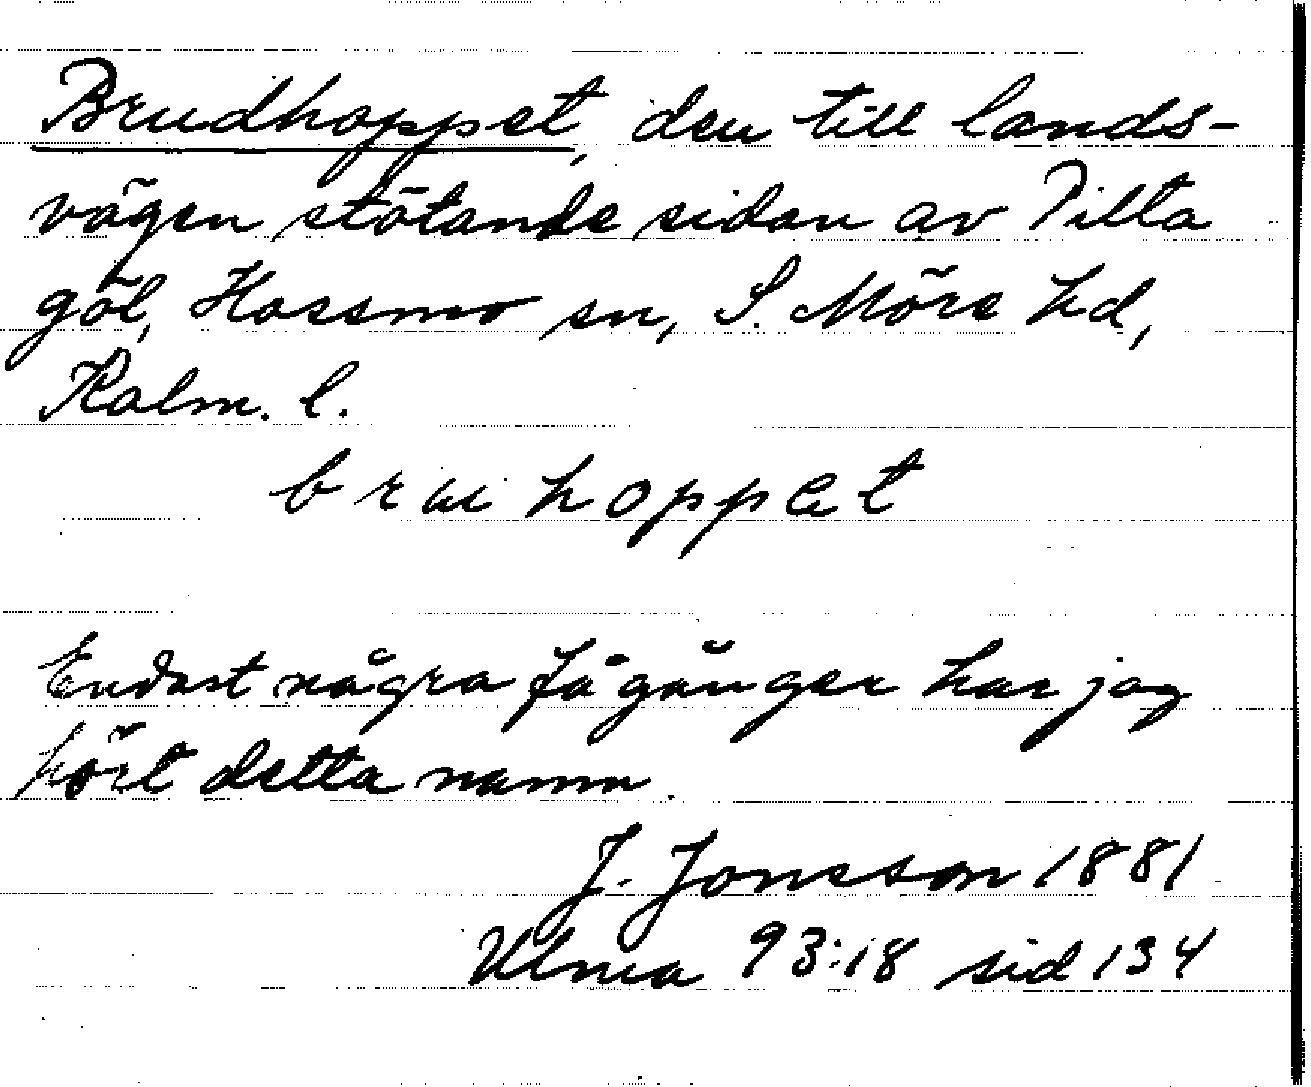 Brudhoppet, den till lands-
vägen stötande sidan av Pilta
göl, Hossmo sn, S. Möre hd,
Kalm. l.
bruhoppet
Endast några få gånger har jag
hört detta namn.
J. Jonsson 1881
Ulma 93:18 sid 134